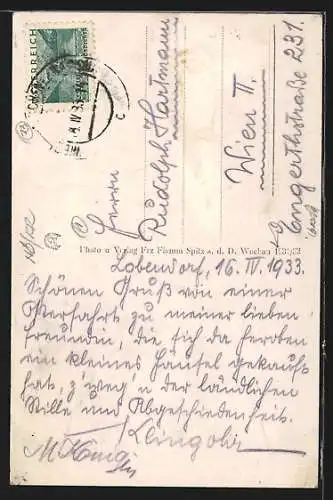 ÖSTERREICH
Herrn
Rudolph Hartmann
Wien II.
Engerthstraße 231.
Photo u Verlag Frz Fiman Spitz a. d. D. Wochau 1131/32
Lobendorf, 16. IV. 1933.
Schönen Gruß von einer
Osterfahrt zu meiner lieben
Freundin, die sich da heroben
ein kleines Häusel gekauft
hat, z weg. u der ländlichen
Stille und Abgeschiedenheit.
Klingohr